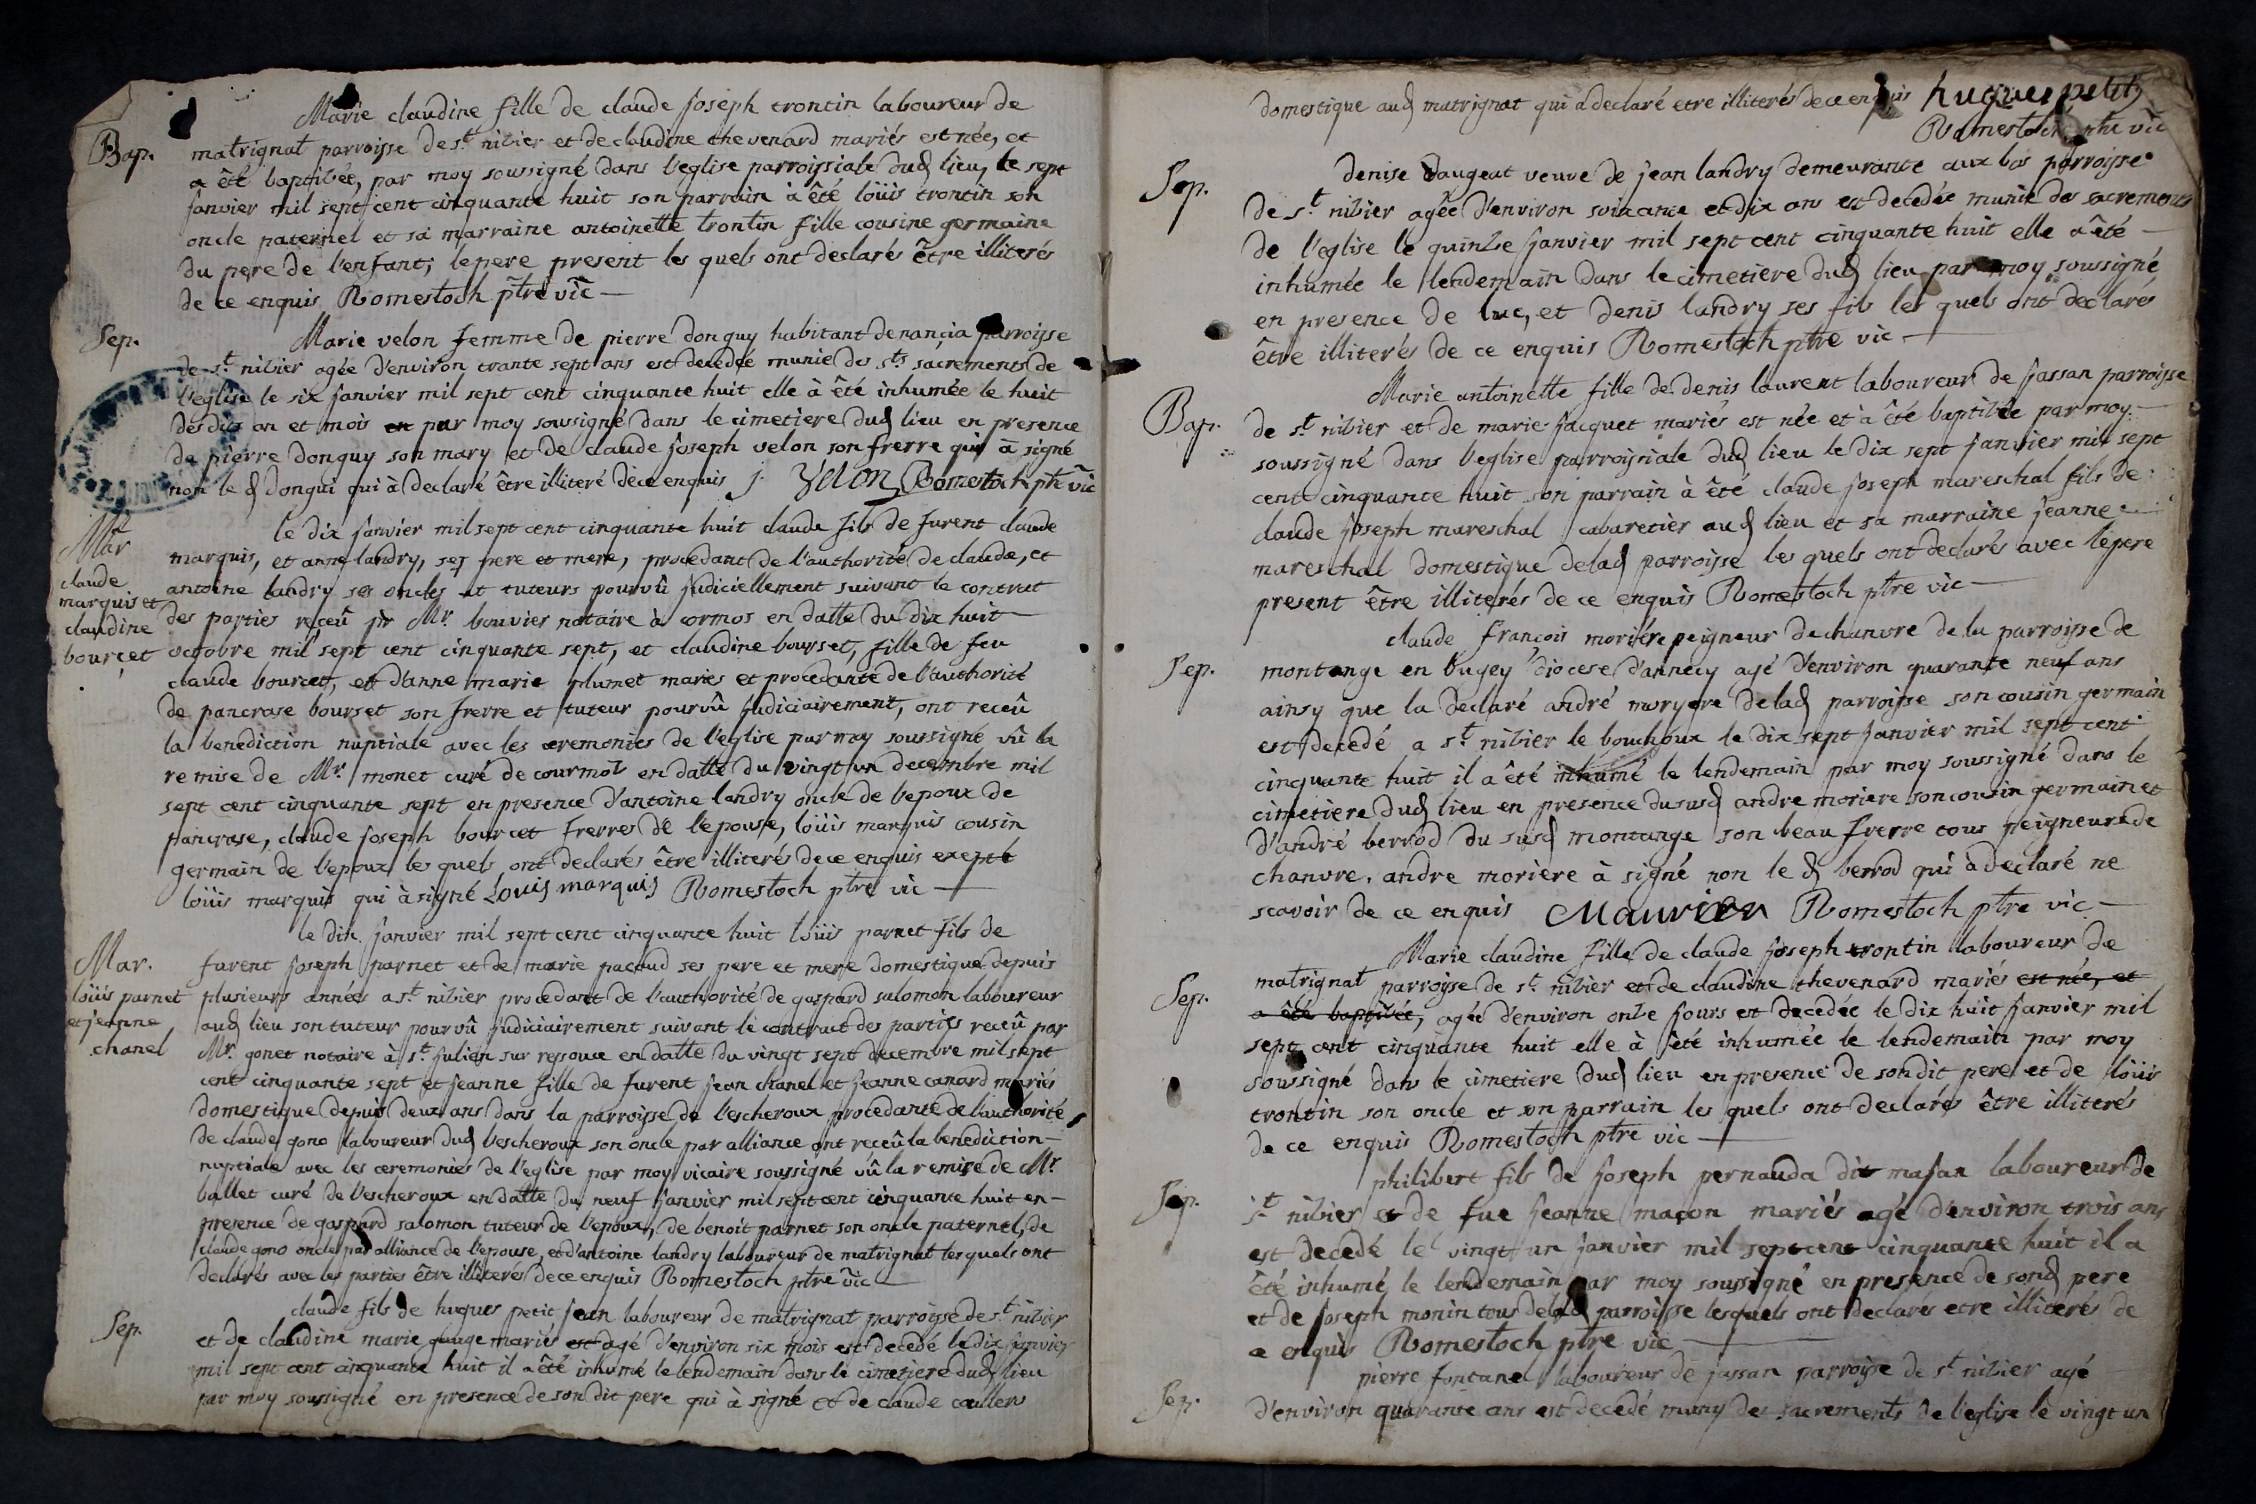 Marie claudine fille de claude joseph trontin laboureur de
Bap. matrignat parroisse de st nizier et de claudine thevenard mariés est née, et
a été baptizée, par moy soussigné dans l'eglise parroissiale dud lieu, le sept
janvier mil sept cent cinquante huit son parrain à été loüis trontin son
oncle paternel et sa marraine antoinette trontin fille cousine germaine
du pere de l'enfant; le pere present les quels ont declarés être illiterés
de ce enquis Romestoch ptre vic
Sep. Marie velon femme de pierre donguy habitant de nancia parroisse
de st nizier agée d'environ trante sept ans est decedée munie des sts sacrements de
l'eglise le six janvier mil sept cent cinquante huit elle à été inhumée le huit
des dits an et mois en par moy soussigné dans le cimetiere dud lieu en presence
de pierre donguy son mary et de claude joseph velon son frerre qui à signé
non le d dongui qui à declaré être illiteré de ce enquis j. Velon Romestoch ptre vic
Mar
claude
marquis et
claudine
bourcet
le dix janvier mil sept cent cinquante huit claude fils de furent claude
marquis, et anne landry, ses pere et mere, procedant de l'authorité de claude, et
antoine landry ses oncles et tuteurs pourvû judiciellement suivant le contrat
des parties reçeû pr Mr. bouvier notaire à cormos en datte du dix huit
octobre mil sept cent cinquante sept, et claudine bourset, fille de feu
claude bourcet, et d'anne marie plumet mariés et procedante de l'authorité
de pancrase bourset son frerre et tuteur pourvû judiciairement, ont receû
la benediction nuptiale avec les ceremonies de l'eglise par moy soussigné vû la
remise de Mr. monet curé de courmoz en datte du vingt un decembre mil
sept cent cinquante sept en presence d'antoine landry oncle de l'epoux de
pancrase, claude joseph bourcet frerres de l'epouse, loüis marquis cousin
germain de l'epoux les quels ont declarés être illiterés de ce enquis exepté
loüis marquis qui à signé Louis marquis Romestoch ptre vic
Mar.
loüis parnet
et jeanne
chanel
le dix janvier mil sept cent cinquante huit loüis parnet fils de
furent joseph parnet et de marie pacoud ses pere et mere domestique depuis
plusieurs années a st nizier procedant de l'authorité de gaspard salomon laboureur
aud lieu son tuteur pourvû judiciairement suivant le contract des parties receû par
Mr. gonet notaire à st julien sur ressouce en datte du vingt sept decembre mil sept
cent cinquante sept et jeanne fille de furent jean chanel et jeanne canard mariés
domestique depuis deux ans dans la parroisse de l'escheroux procedante de l'authorité
de claude gono laboureur dud l'escheroux son oncle par alliance ont reçeû la benediction
nuptiale avec les ceremonies de l'eglise par moy vicaire soussigné vû la remise de Mr
ballet curé de l'escheroux en datte du neuf janvier mil sept cent cinquante huit en
presence de gaspard salomon tuteur de l'epoux, de benoit parnet son oncle paternel, de
claude gono oncle par alliance de l'epouse, et d'antoine landry laboureur de matrignat les quels ont
declarés avec les parties être illiterés de ce enquis Romestoch ptre vic
Sep. claude fils de hugues petit jean laboureur de matrignat parroisse de st nizier
et de claudine marie mariés est agé d'environ six mois est decedé le dix janvier
mil sept cent cinquante huit il a été inhumé le lendemain dans le cimetiere dud lieu
par moy soussigné en presence de son dit pere qui à signé et de claude
domestique aud matrignat qui a declaré etre illiterés de ce enquis hugues petit
Romestoch ptre vic
Sep. denise daugeat veuve de jean landry demeurante aux bas parroisse
de st nizier agée d'environ soixante et dix ans est decedée munie des sacrements
de l'eglise le quinze janvier mil sept cent cinquante huit elle à été
inhumée le lendemain dans le cimetiere dud lieu par moy soussigné
en presence de luc, et denis landry ses fils les quels ont declarés
être illiterés de ce enquis Romestoch ptre vic
Bap. Marie antoinette fille de denis laurent laboureur de jassan parroisse
de st nizier et de marie jacquet mariés est née et à été baptizée par moy
soussigné dans l'eglise parroissiale dud lieu le dix sept janvier mil sept
cent cinquante huit son parrain à été claude joseph mareschal fils de
claude joseph mareschal cabaretier aud lieu et sa marraine jeanne
mareschal domestique de lad parroisse les quels ont declarés avec le pere
present être illiterés de ce enquis Romestoch ptre vic
Sep. claude françois moriére peigneur de chanvre de la parroisse de
montange en bugey diocese d'annecy agé d'environ quarante neuf ans
ainsy que la declaré andré moryere de lad parroisse son cousin germain
est decedé a st nizier le bouchoux le dix sept janvier mil sept cent
cinquante huit il a été inhumé le lendemain par moy soussigné dans le
cimetiere dud lieu en presence du susd andre moriere son cousin germain et
d'andré berrod du susd montange son beau frerre tous peigneurs de
chanvre. andre moriere à signé non le d berrod qui à declaré ne
scavoir de ce enquis Maurier Romestoch ptre vic
Sep. Marie claudine fille de claude joseph trontin laboureur de
matrignat parroisse de st nizier et de claudine thevenard mariés est née, et
a été baptizée, agée d'environ onze jours est decedée le dix huit janvier mil
sept cent cinquante huit elle à été inhumée le lendemain par moy
soussigné dans le cimetiere dud lieu en presence de son dit pere et de loüis
trontin son oncle et son parrain les quels ont declarés être illiterés
de ce enquis Romestoch ptre vic
Sep. philibert fils de joseph pernauda dit majan laboureur de
st nizier et de fue jeanne maçon mariés agé d'environ trois ans
est decedé le vingt un janvier mil sept cent cinquante huit il a
été inhumé le lendemain par moy soussigné en presence de sond pere
et de joseph monin tous de lad parroisse lesquels ont declarés etre illiterés de
ce enquis Romestoch ptre vic
Sep. pierre fontanel laboureur de jassan parroisse de st nizier agé
d'environ quarante ans est decedé muny des sacrements de l'eglise le vingt un